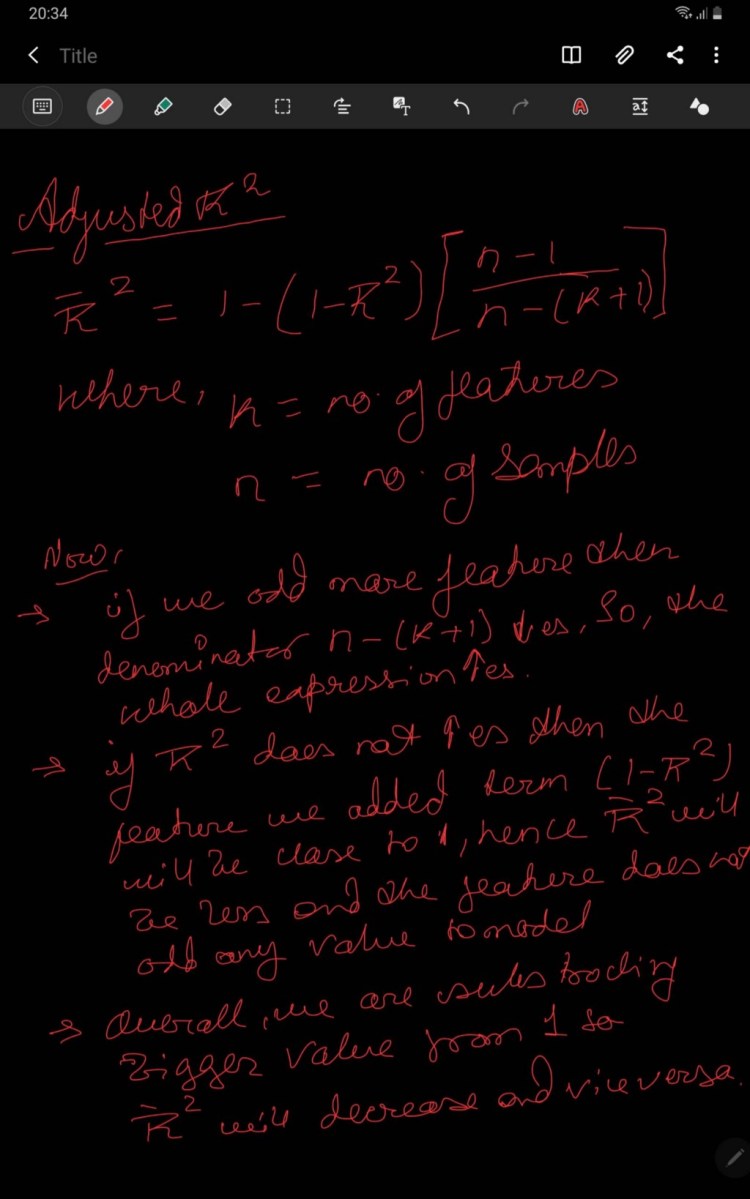 20:34
Title
Adjusted R²
R̄² = 1-(1-R²)[n-1/n-(k+1)]
where, k = no. of features
n = no. of samples
Now,
→ if we add more feature then
denominator n-(k+1) ↓es, So, the
whole expression ↑es.
→ if R² does not ↑es then the
feature we added term (1-R²)
will be close to 1, hence R̄² will
be less and the feature does not
add any value to model
→ Overall, we are subtracting
bigger value from 1 so
R̄² will decrease and vice versa.